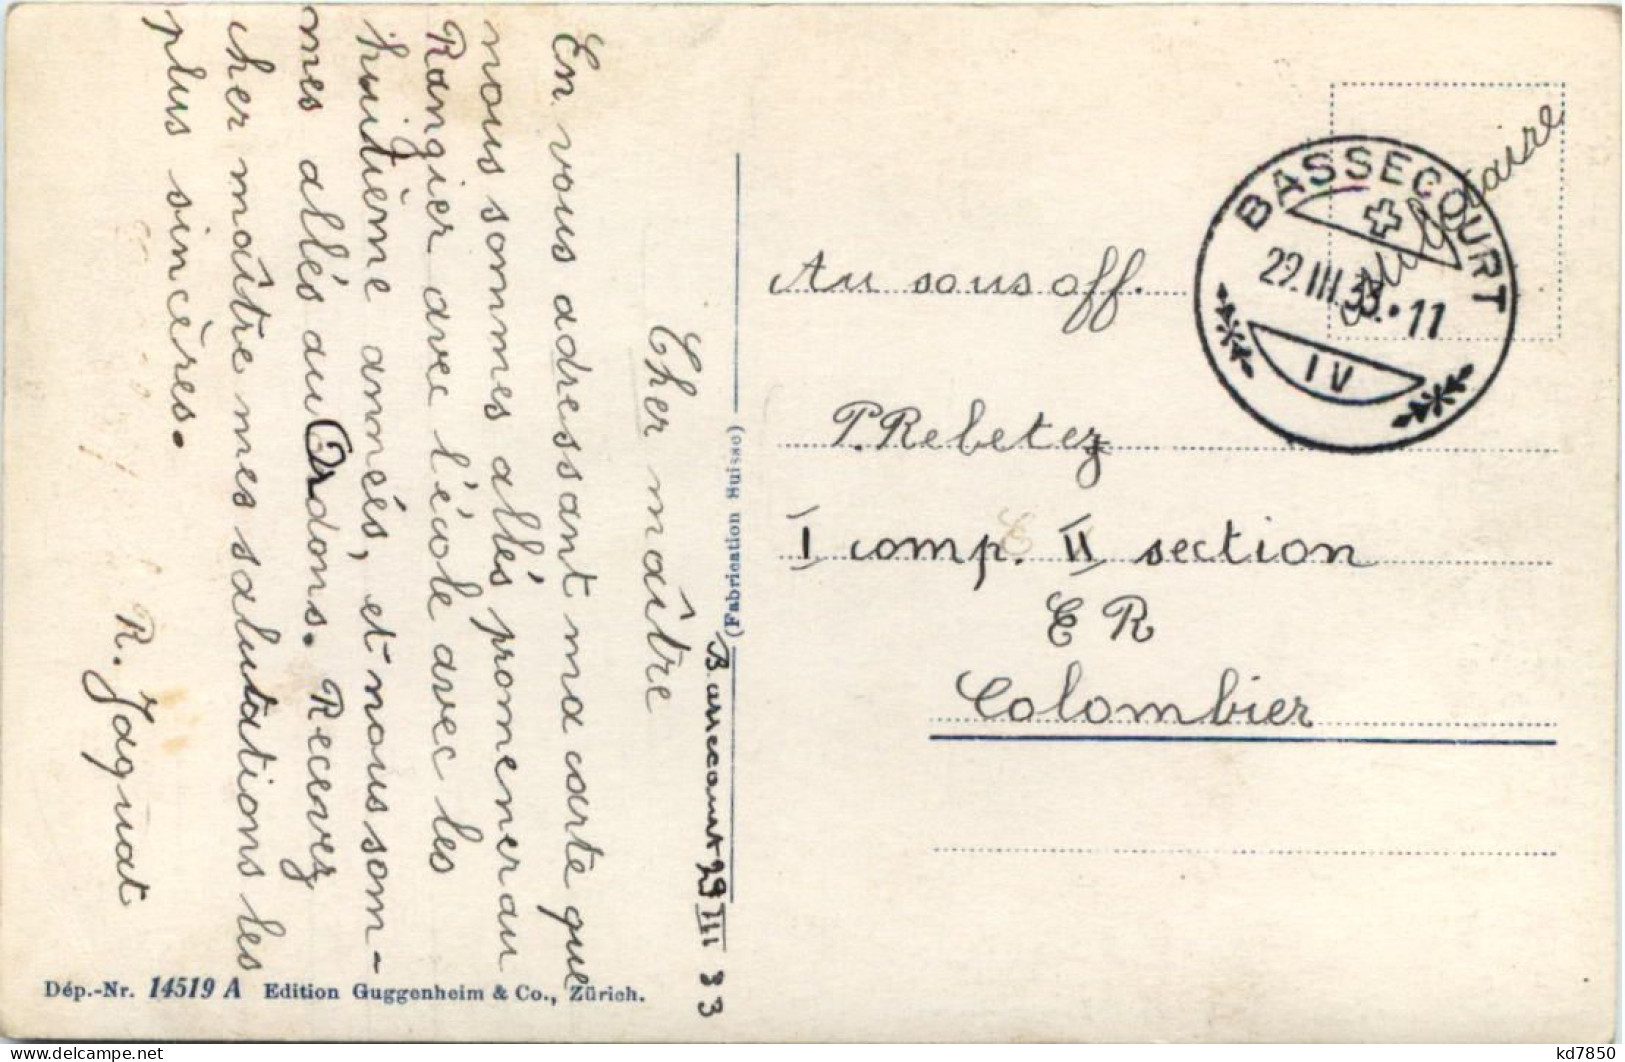 Bassecourt 29 III 33
Cher maître
En vous adressant ma carte que
nous sommes allés promener au
Rangier avec l'école avec les
huitième années, et nous som-
mes allés au Ordons. Recevez
cher maître mes salutations les
plus sincères.
R. Jaquat
Dép.-Nr. 14519 A Edition Guggenheim & Co., Zürich.
(Fabrication Suisse)
militaire
BASSECOURT
29.III.33.•11
IV
Au sous off.
P. Rebetez
I comp. II section
E R
Colombier
kd7850